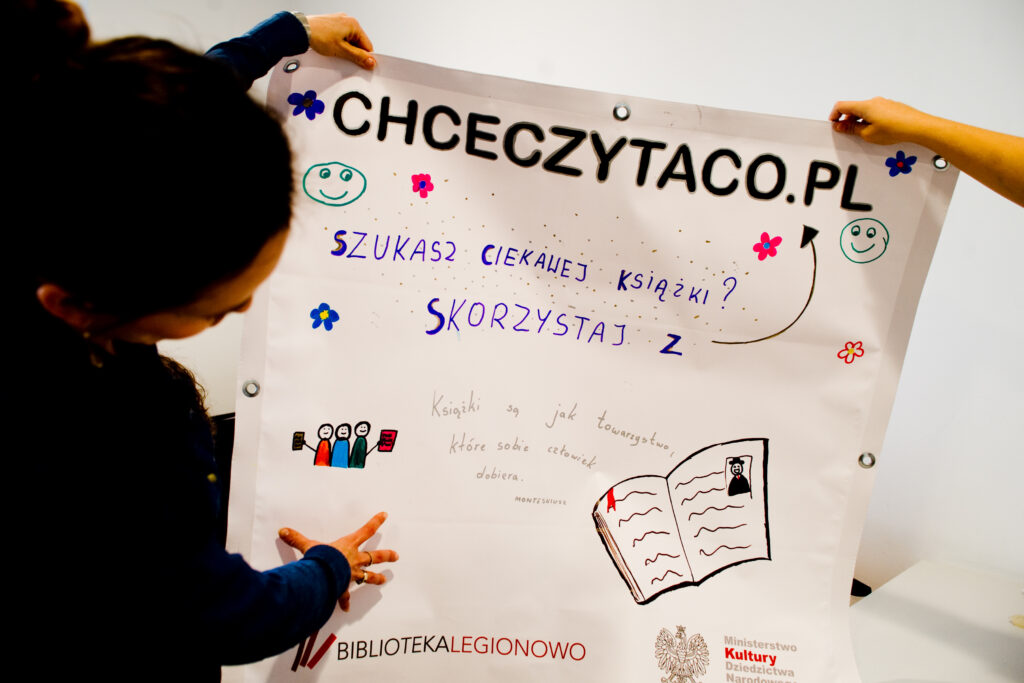 CHCECZYTACO.PL
SZUKASZ CIEKAWEJ KSIĄŻKI?
SKORZYSTAJ Z
Książki są jak towarzystwo,
które sobie człowiek
dobiera.
MONTESKIUSZ
BIBLIOTEKALEGIONOWO
Ministerstwo
Kultury
Dziedzictwa
Narodowego